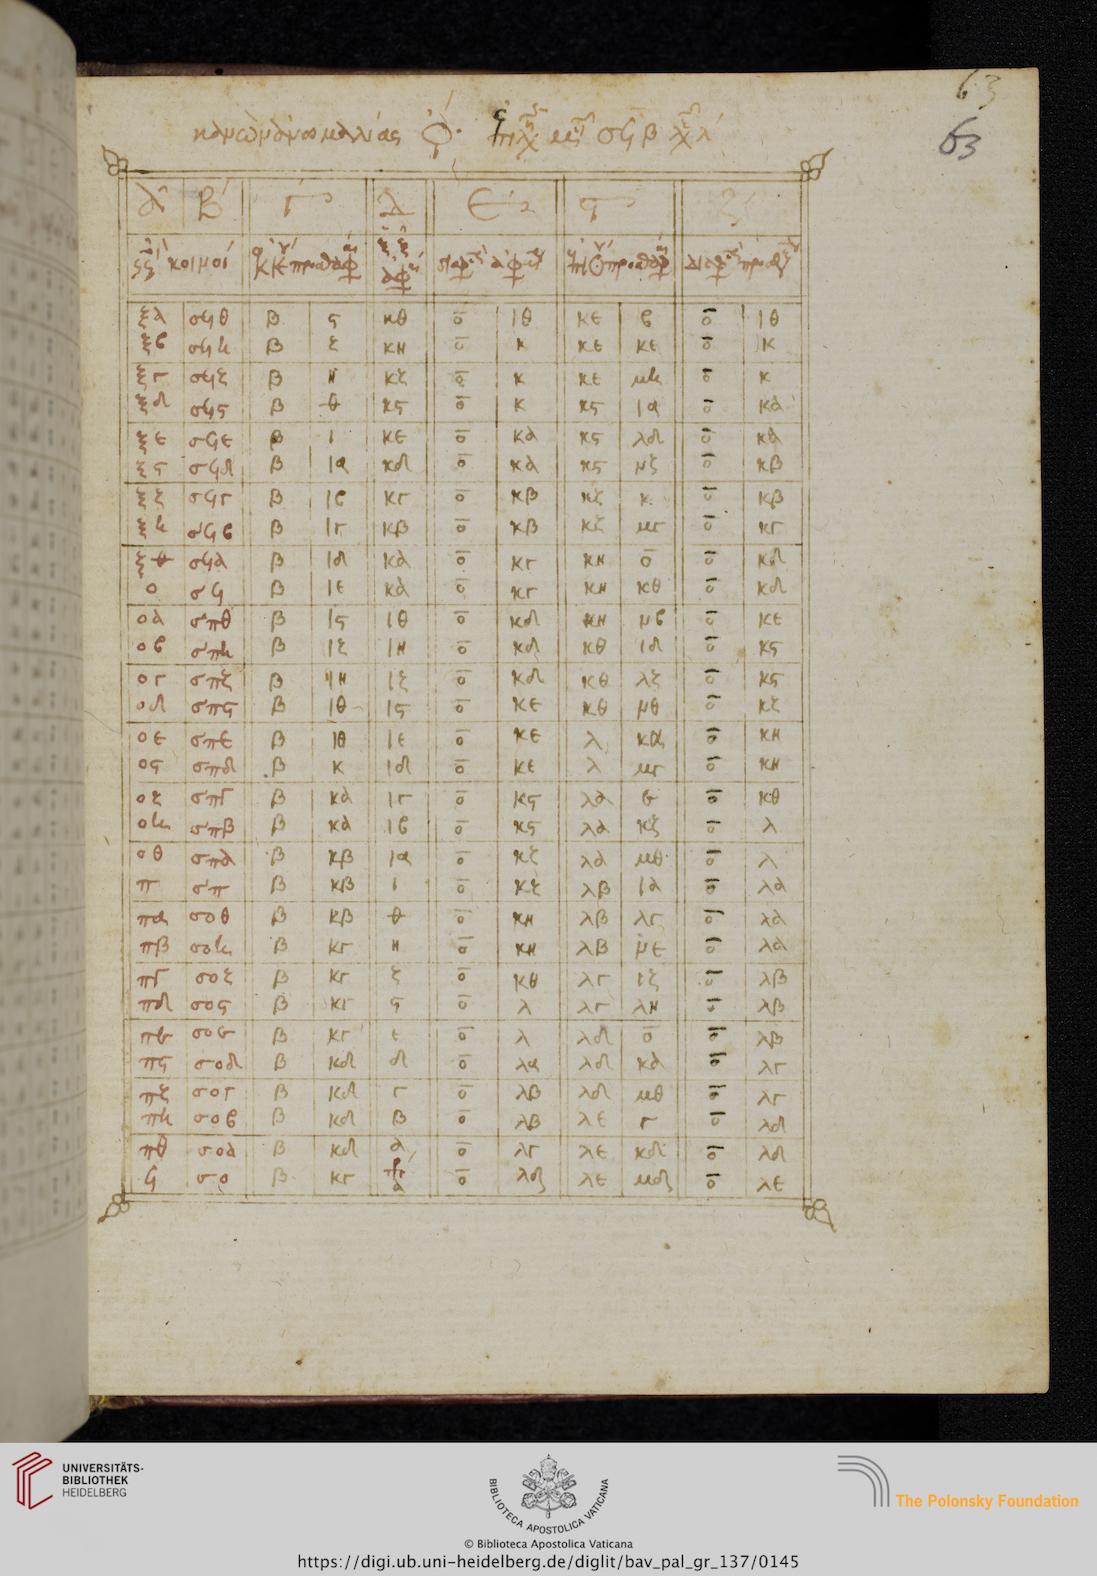 63
63
κανων ανωμαλιας
Α Β Γ Δ Ε Ϛ Ζ
κοινοι
ξα σϟθ β ϛ κθ ο ιθ κε β ο ιθ
ξβ σϟη β ζ κη ο κ κε κε ο κ
ξγ σϟζ β η κζ ο κ κε μη ο κ
ξδ σϟϛ β θ κϛ ο κ κϛ ια ο κα
ξε σϟε β ι κε ο κα κϛ λδ ο κα
ξϛ σϟδ β ια κδ ο κα κϛ μζ ο κβ
ξζ σϟγ β ιβ κγ ο κβ κζ κ ο κβ
ξη σϟβ β ιγ κβ ο κβ κζ μγ ο κγ
ξθ σϟα β ιδ κα ο κγ κη ο ο κδ
ο σϟ β ιε κα ο κγ κη κθ ο κδ
οα σπθ β ιϛ ιθ ο κδ κη μβ ο κε
οβ σπη β ιζ ιη ο κδ κθ ιδ ο κϛ
ογ σπζ β ιη ιζ ο κδ κθ λζ ο κϛ
οδ σπϛ β ιθ ιϛ ο κε κθ μθ ο κζ
οε σπε β ιθ ιε ο κε λ κα ο κη
οϛ σπδ β κ ιδ ο κε λ μγ ο κη
οζ σπγ β κα ιγ ο κϛ λα ε ο κθ
οη σπβ β κα ιβ ο κϛ λα κζ ο λ
οθ σπα β κβ ια ο κζ λα μθ ο λ
π σπ β κβ ι ο κζ λβ ια ο λα
πα σοθ β κβ θ ο κη λβ λγ ο λα
πβ σοη β κγ η ο κη λβ με ο λα
πγ σοζ β κγ ζ ο κθ λγ ιζ ο λβ
πδ σοϛ β κγ ϛ ο λ λγ λη ο λβ
πε σοε β κγ ε ο λ λδ ο ο λβ
πϛ σοδ β κδ δ ο λα λδ κα ο λγ
πζ σογ β κδ γ ο λβ λδ μθ ο λγ
πη σοβ β κδ β ο λβ λε γ ο λδ
πθ σοα β κδ α ο λγ λε κδ ο λδ
ϟ σο β κγ α ο λδ λε μδ ο λε
UNIVERSITÄTS-
BIBLIOTHEK
HEIDELBERG
BIBLIOTECA APOSTOLICA VATICANA
The Polonsky Foundation
© Biblioteca Apostolica Vaticana
https://digi.ub.uni-heidelberg.de/diglit/bav_pal_gr_137/0145